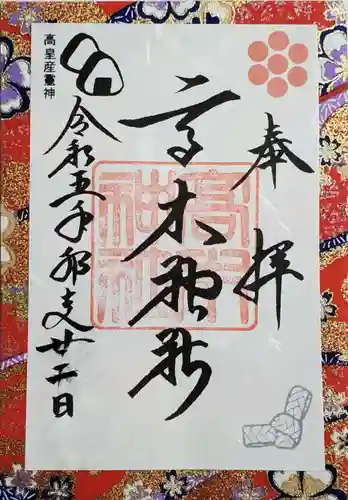 奉拝
高木神社
高木
神社
高皇産靈神
令和五年 廿二日